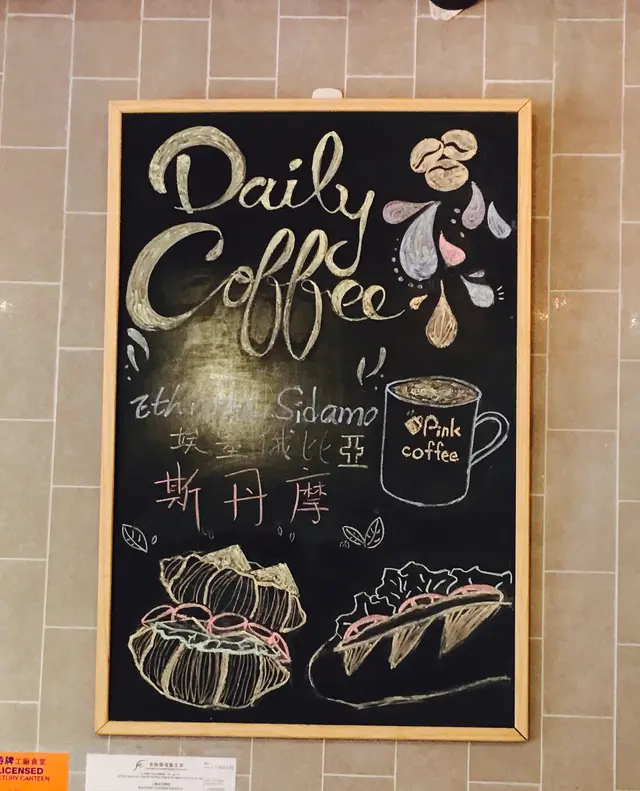 Daily
Coffee
Ethiopia Sidamo
埃塞俄比亞
斯丹摩
Pink
coffee
牌工廠食堂
LICENSED
CTORY CANTEEN